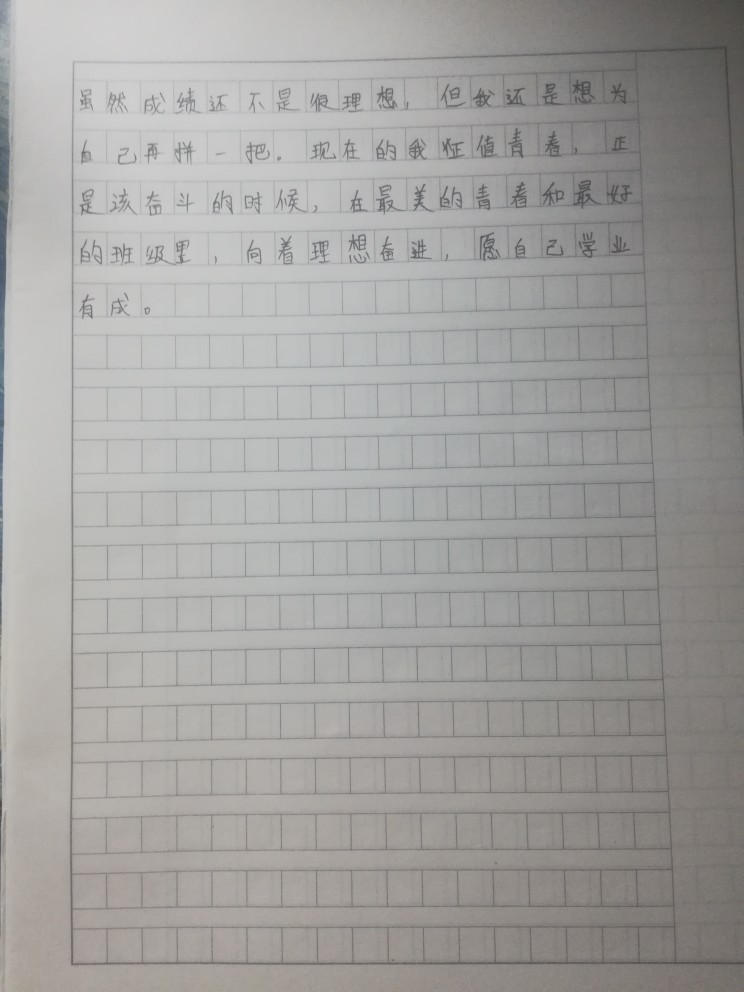 虽然成绩还不是很理想，但我还是想为
自己再拼一把。现在的我恒值青春，正
是该奋斗的时候，在最美的青春和最好
的班级里，向着理想奋进，愿自己学业
有成。